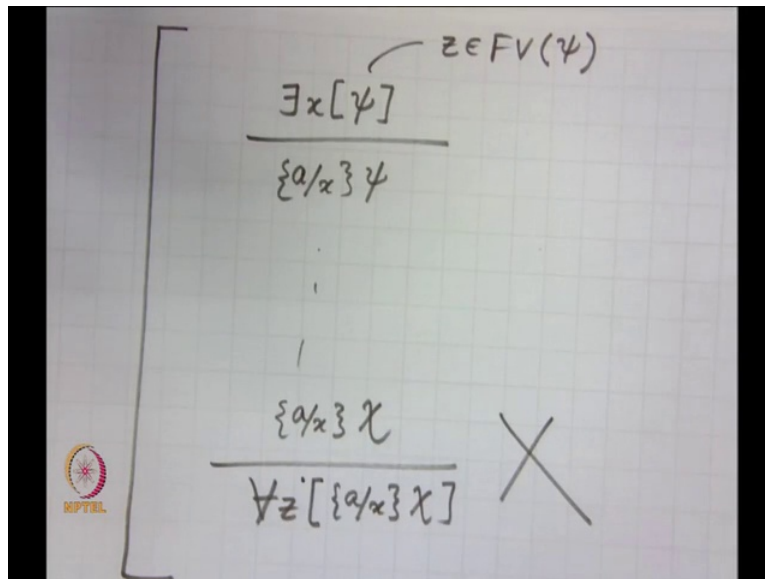 z ∈ FV(ψ)
∃x[ψ]
{a/x}ψ
{a/x}χ
∀z[{a/x}χ]
NPTEL